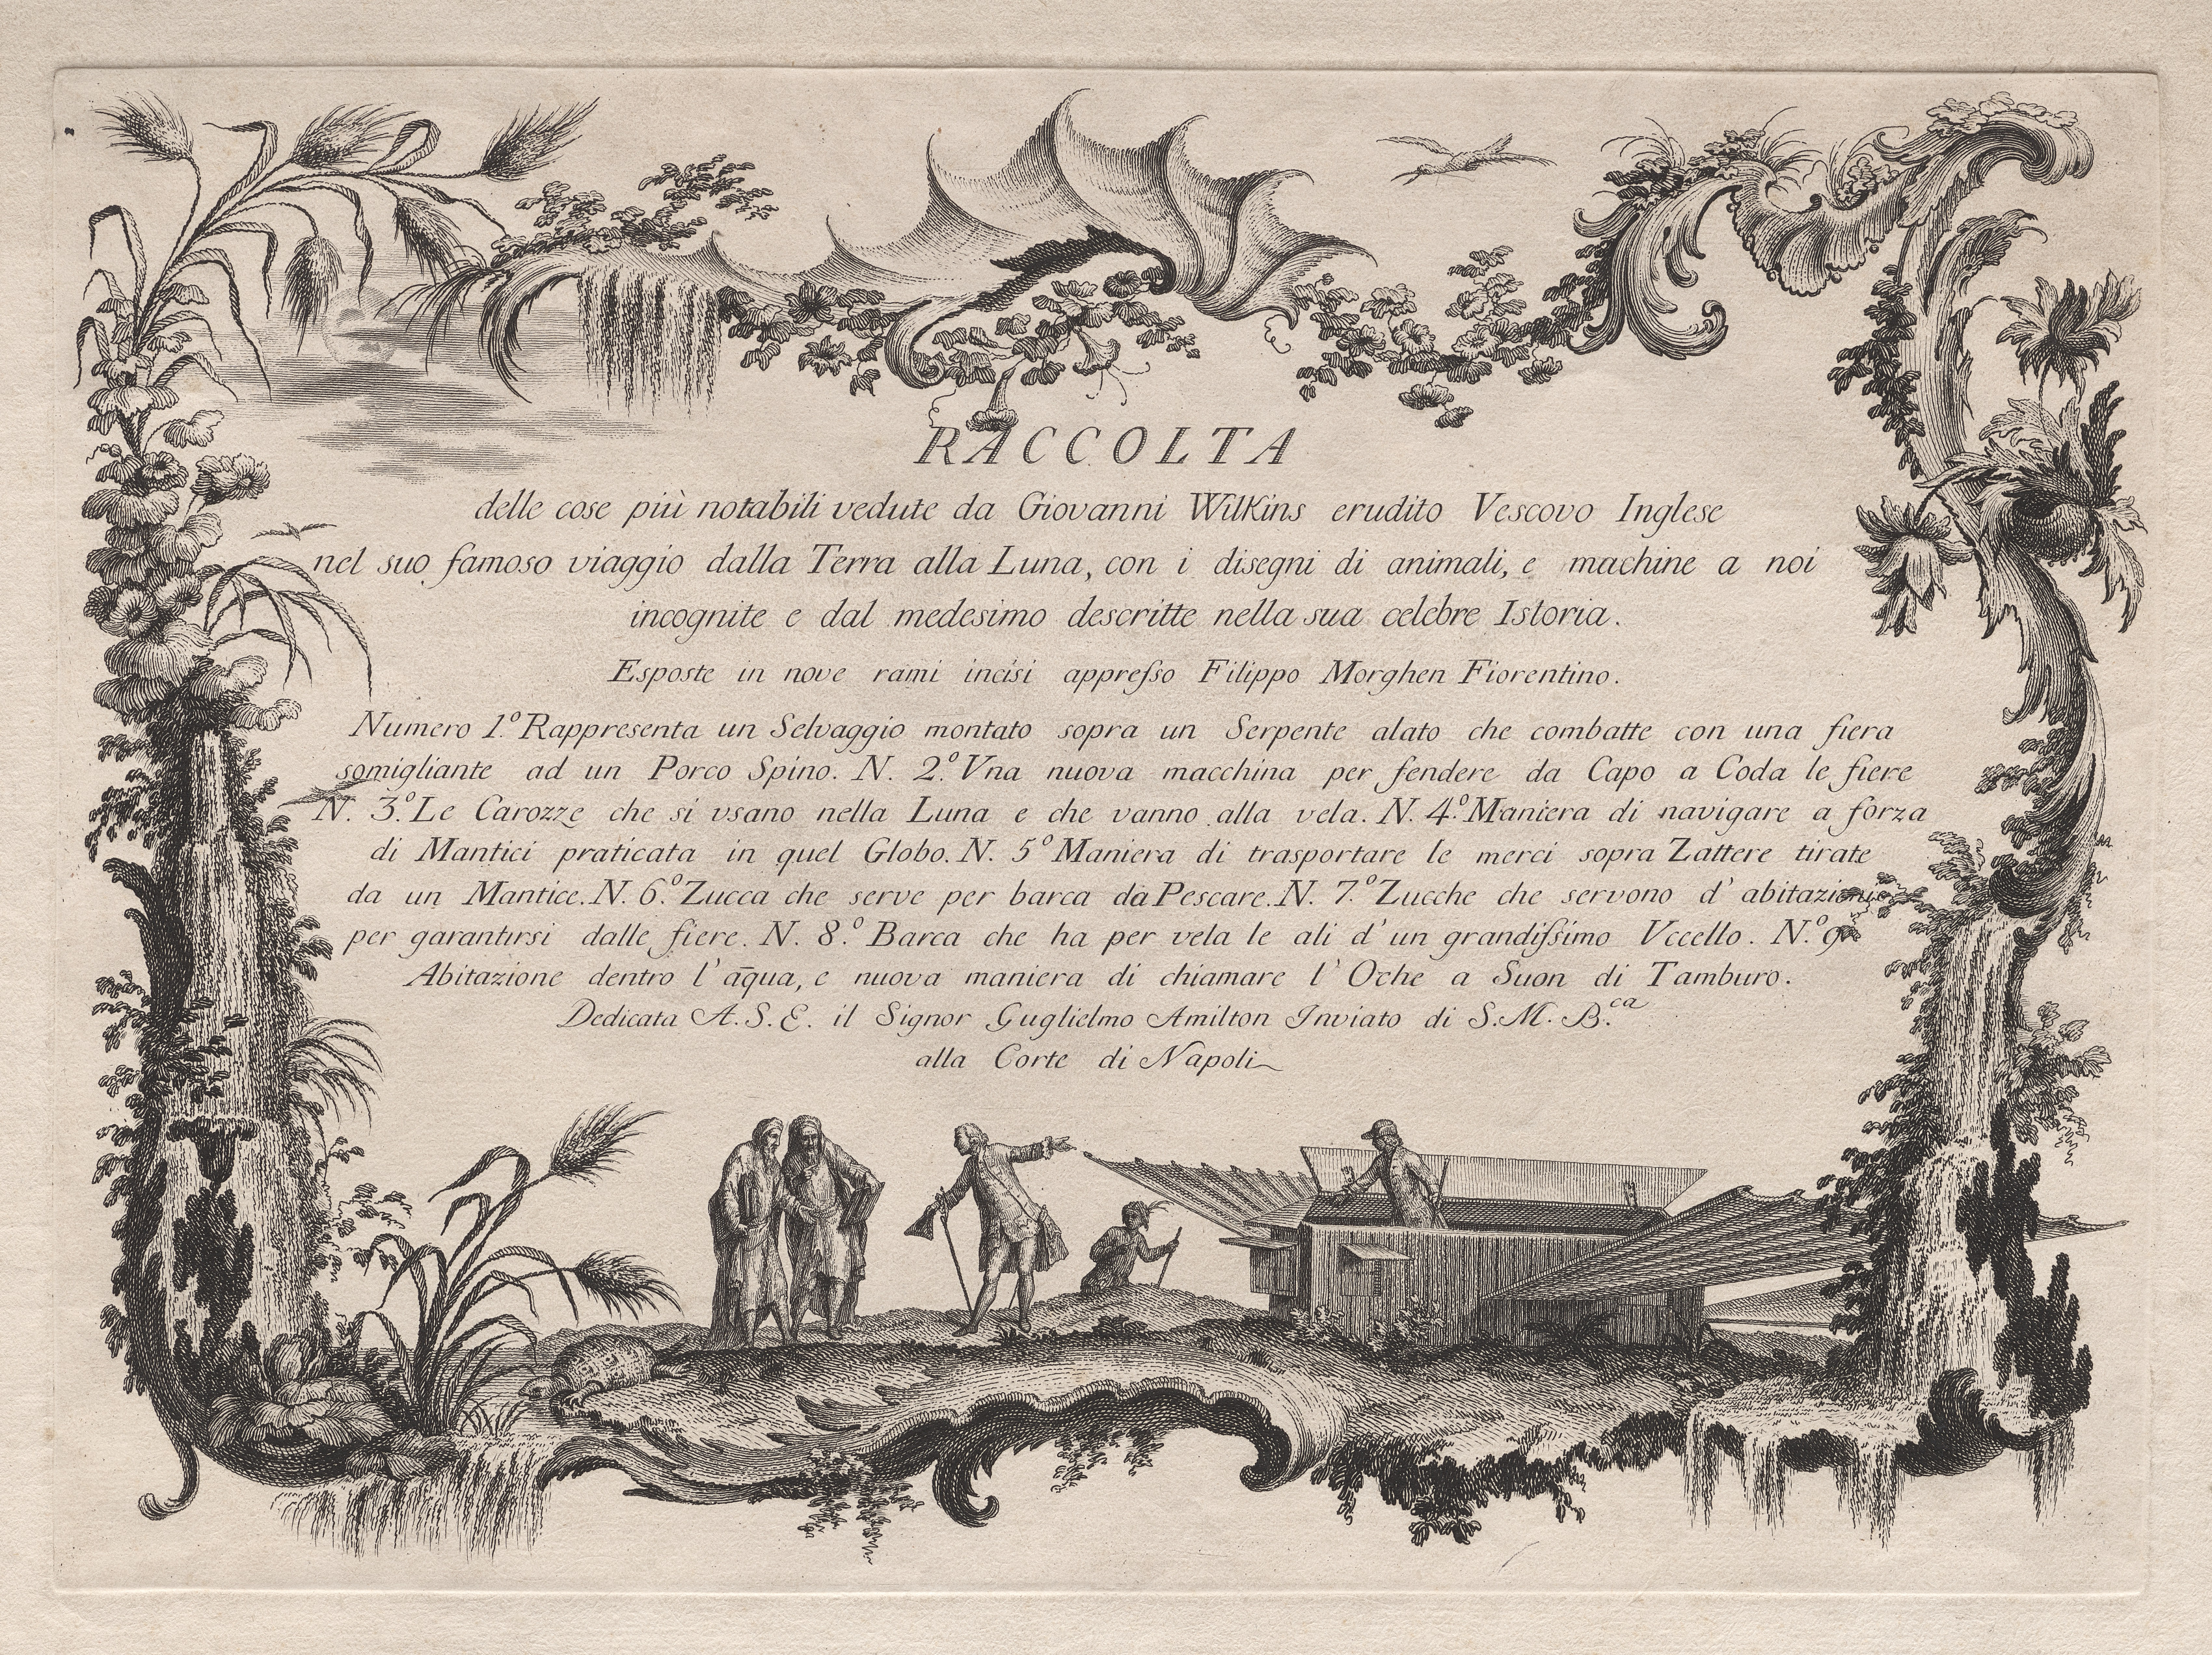 RACCOLTA
delle cose più notabili vedute da Giovanni Wilkins erudito Vescovo Inglese
nel suo famoso viaggio dalla Terra alla Luna, con i disegni di animali, e machine a noi
incognite e dal medesimo descritte nella sua celebre Istoria.
Esposte in nove rami incisi appreſso Filippo Morghen Fiorentino.
Numero 1.º Rappresenta un Selvaggio montato sopra un Serpente alato che combatte con una fiera
somigliante ad un Porco Spino. N. 2.º Vna nuova macchina per fendere da Capo a Coda le fiere
N. 3.º Le Carozze che si vsano nella Luna e che vanno alla vela. N. 4.º Maniera di navigare a forza
di Mantici praticata in quel Globo. N. 5º Maniera di trasportare le merci sopra Zattere tirate
da un Mantice. N. 6.º Zucca che serve per barca da Pescare. N. 7.º Zucche che servono d' abitazione
per garantirsi dalle fiere. N. 8.º Barca che ha per vela le ali d' un grandiſsimo Vccello. N.º 9
Abitazione dentro l' aq̄ua, e nuova maniera di chiamare l' Oche a Suon di Tamburo.
Dedicata A. S. E. il Signor Guglielmo Amilton Inviato di S. M. B.ca
alla Corte di Napoli